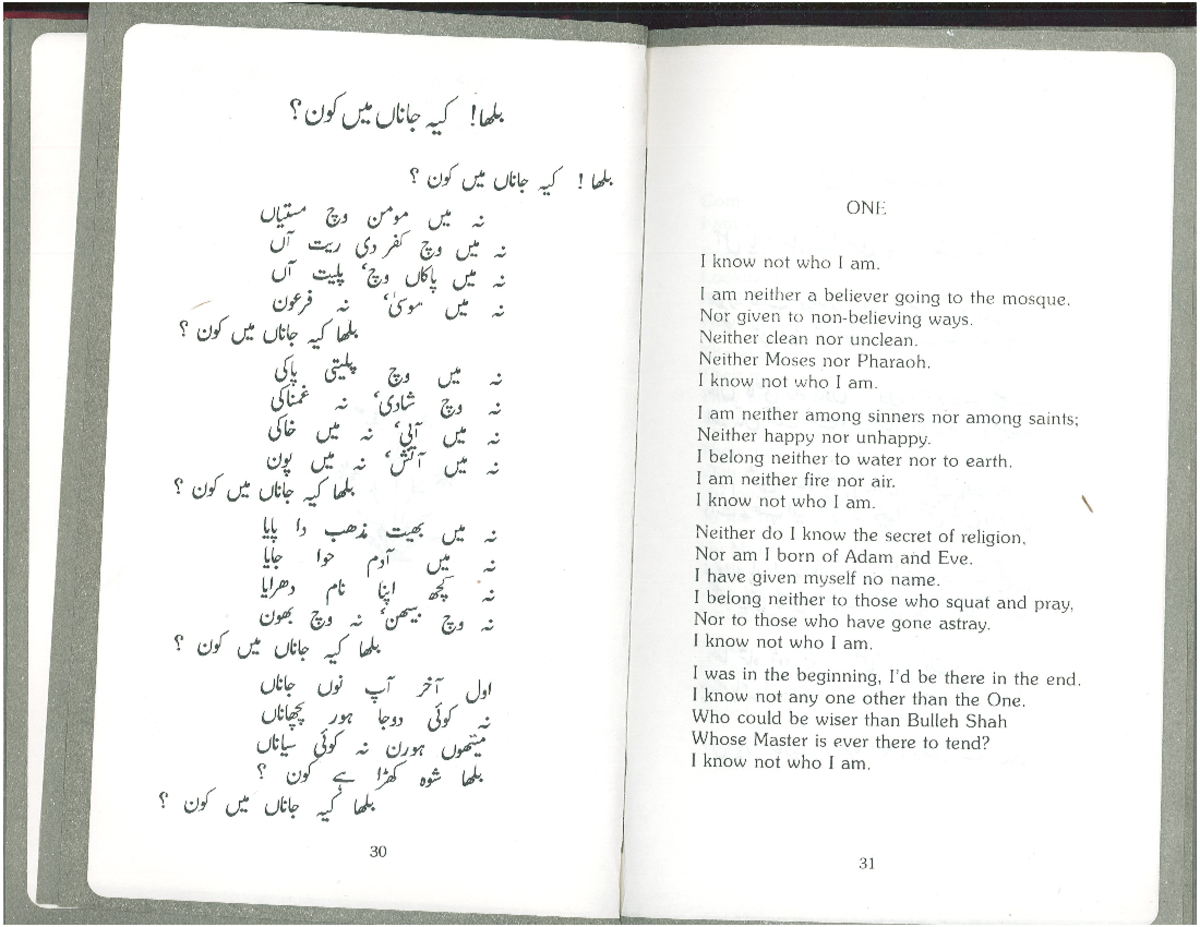 بلھا! کیہ جاناں میں کون؟
بلھا! کیہ جاناں میں کون؟
نہ میں مومن وچ مستیاں
نہ میں وچ کفر دی ریت آں
نہ میں پاکاں وچ، پلیت آں
نہ میں موسیٰ، نہ فرعون
بلھا کیہ جاناں میں کون؟
نہ میں وچ پلیتی پاکی
نہ وچ شادی، نہ غمناکی
نہ میں آبی، نہ میں خاکی
نہ میں آتش، نہ میں پون
بلھا کیہ جاناں میں کون؟
نہ میں بھیت مذھب دا پایا
نہ میں آدم حوا جایا
نہ کچھ اپنا نام دھرایا
نہ وچ بیٹھن، نہ وچ بھون
بلھا کیہ جاناں میں کون؟
اول آخر آپ نوں جاناں
نہ کوئی دوجا ہور پچھاناں
میتھوں ہورن نہ کوئی سیاناں
بلھا شوہ کھڑا ہے کون؟
بلھا کیہ جاناں میں کون؟
30
ONE
I know not who I am.
I am neither a believer going to the mosque.
Nor given to non-believing ways.
Neither clean nor unclean.
Neither Moses nor Pharaoh.
I know not who I am.
I am neither among sinners nor among saints;
Neither happy nor unhappy.
I belong neither to water nor to earth.
I am neither fire nor air.
I know not who I am.
Neither do I know the secret of religion,
Nor am I born of Adam and Eve.
I have given myself no name.
I belong neither to those who squat and pray,
Nor to those who have gone astray.
I know not who I am.
I was in the beginning, I'd be there in the end.
I know not any one other than the One.
Who could be wiser than Bulleh Shah
Whose Master is ever there to tend?
I know not who I am.
31